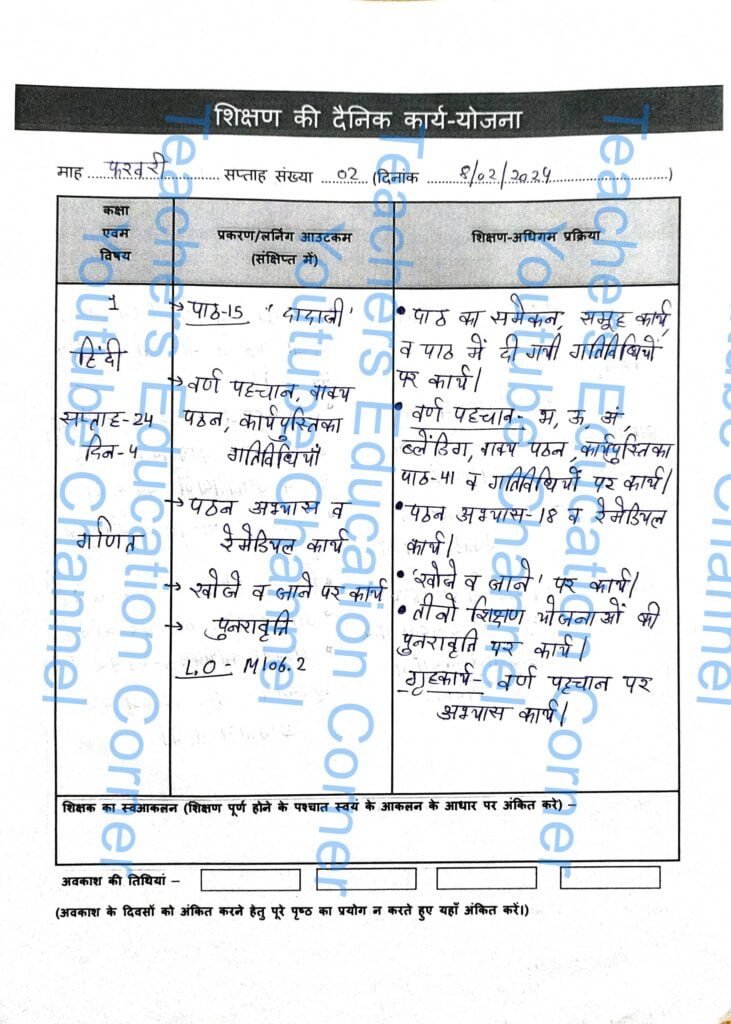 शिक्षण की दैनिक कार्य-योजना
माह फरवरी सप्ताह संख्या 02 (दिनांक 8/02/2024)
कक्षा
एवम
विषय
प्रकरण/लर्निंग आउटकम
(संक्षिप्त में)
शिक्षण-अधिगम प्रक्रिया
1
हिंदी
सप्ताह-24
दिन-4
गणित
→ पाठ-15 'दादाजी'
→ वर्ण पहचान, वाक्य
पठन, कार्यपुस्तिका
गतिविधियाँ
→ पठन अभ्यास व
रेमेडियल कार्य
→ खोजे व जाने पर कार्य
→ पुनरावृति
L.O - M106.2
• पाठ का समेकन, समूह कार्य,
व पाठ में दी गयी गतिविधियों
पर कार्य।
• वर्ण पहचान- भ, ऊ, अं,
ब्लेंडिंग, वाक्य पठन, कार्यपुस्तिका
पाठ-41 व गतिविधियों पर कार्य।
• पठन अभ्यास-18 व रेमेडियल
कार्य।
• 'खोजे व जाने' पर कार्य।
• तीनो शिक्षण योजनाओं की
पुनरावृति पर कार्य।
गृहकार्य- वर्ण पहचान पर
अभ्यास कार्य।
शिक्षक का स्वआकलन (शिक्षण पूर्ण होने के पश्चात स्वयं के आकलन के आधार पर अंकित करे) –
अवकाश की तिथियां –
(अवकाश के दिवसों को अंकित करने हेतु पूरे पृष्ठ का प्रयोग न करते हुए यहाँ अंकित करें।)
Teachers Education Corner
Youtube Channel
Teachers Education Corner
Youtube Channel
Teachers Education Corner
Youtube Channel